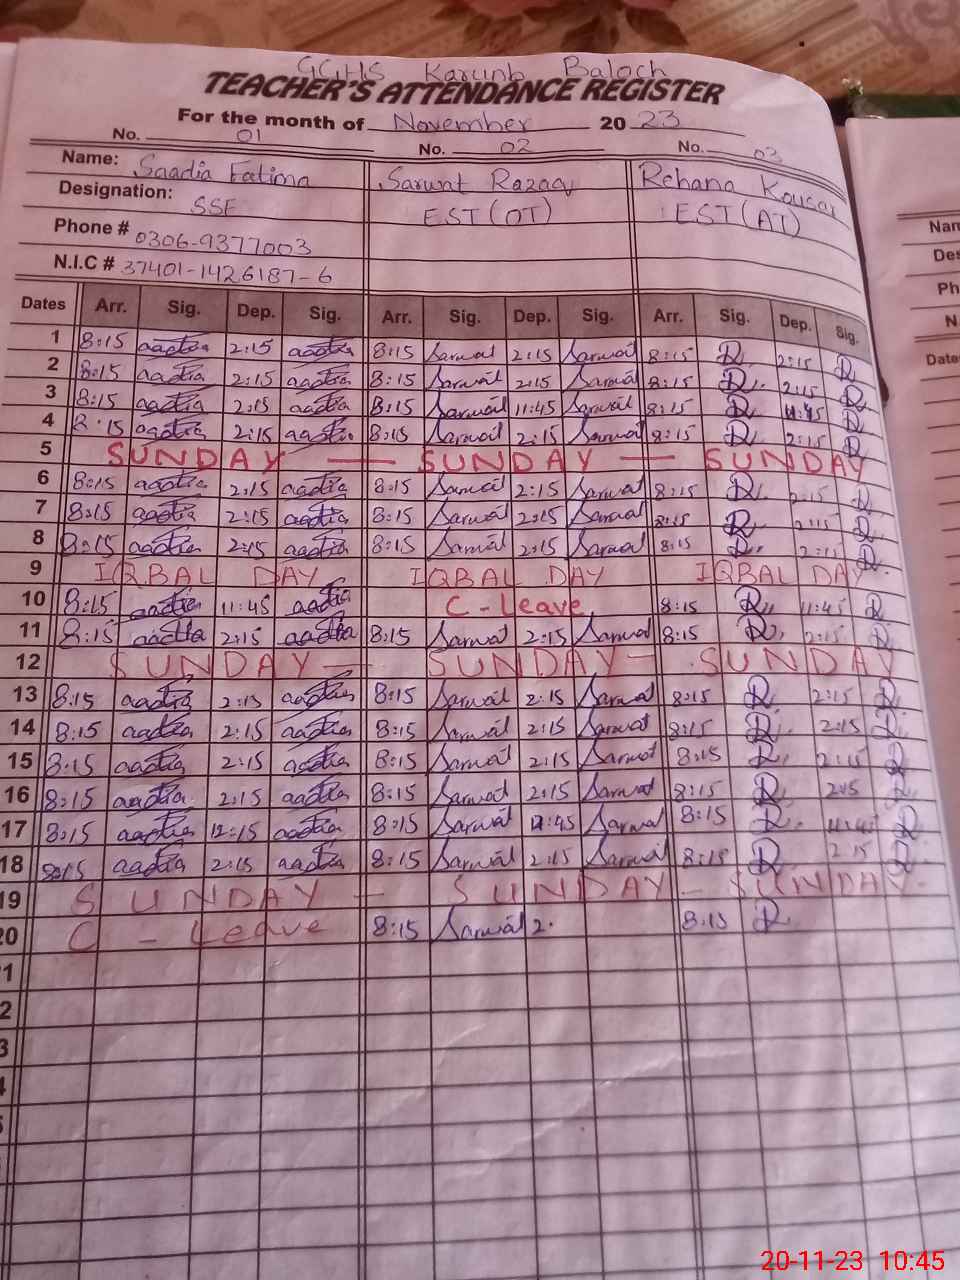 GGHS Karunb Baloch
TEACHER'S ATTENDANCE REGISTER
For the month of November 20 23
No. 01 No. 02 No. 03
Name: Saadia Fatima Sarwat Razaq Rehana Kousar
Designation: SSE EST(OT) EST(AT)
Phone # 0306-9377003
N.I.C # 37401-1426187-6
Dates Arr. Sig. Dep. Sig. Arr. Sig. Dep. Sig. Arr. Sig. Dep. Sig.
1 8:15 aadia 2:15 aadia 8:15 Sarwat 2:15 Sarwat 8:15 R 2:15 R
2 8:15 aadia 2:15 aadia 8:15 Sarwat 2:15 Sarwat 8:15 R 2:15 R
3 8:15 aadia 2:15 aadia 8:15 Sarwat 11:45 Sarwat 8:15 R 11:45 R
4 8:15 aadia 2:15 aadia 8:15 Sarwat 2:15 Sarwat 8:15 R 2:15 R
5 SUNDAY — SUNDAY — SUNDAY
6 8:15 aadia 2:15 aadia 8:15 Sarwat 2:15 Sarwat 8:15 R 2:15 R
7 8:15 aadia 2:15 aadia 8:15 Sarwat 2:15 Sarwat 8:15 R 2:15 R
8 8:15 aadia 2:15 aadia 8:15 Sarwat 2:15 Sarwat 8:15 R 2:15 R
9 IQBAL DAY IQBAL DAY IQBAL DAY
10 8:15 aadia 11:45 aadia C-Leave 8:15 R 11:45 R
11 8:15 aadia 2:15 aadia 8:15 Sarwat 2:15 Sarwat 8:15 R 2:15 R
12 SUNDAY — SUNDAY — SUNDAY
13 8:15 aadia 2:15 aadia 8:15 Sarwat 2:15 Sarwat 8:15 R 2:15 R
14 8:15 aadia 2:15 aadia 8:15 Sarwat 2:15 Sarwat 8:15 R 2:15 R
15 8:15 aadia 2:15 aadia 8:15 Sarwat 2:15 Sarwat 8:15 R 2:15 R
16 8:15 aadia 2:15 aadia 8:15 Sarwat 2:15 Sarwat 8:15 R 2:15 R
17 8:15 aadia 12:15 aadia 8:15 Sarwat 11:45 Sarwat 8:15 R 11:45 R
18 8:15 aadia 2:15 aadia 8:15 Sarwat 2:15 Sarwat 8:15 R 2:15 R
19 SUNDAY — SUNDAY — SUNDAY -
20 C - Leave 8:15 Sarwat 2. 8:15 R
Nam
Des
Ph
N.
Date
20-11-23 10:45